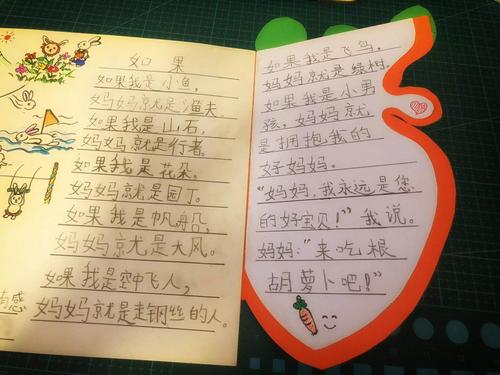 如果
如果我是小鱼，
妈妈就是渔夫。
如果我是山石，
妈妈就是行者。
如果我是花朵。
妈妈就是园丁。
如果我是帆船，
妈妈就是大风。
如果我是空中飞人，
妈妈就是走钢丝的人。
如果我是飞鸟，
妈妈就是绿树，
如果我是小男
孩，妈妈就
是拥抱我的
好妈妈。
“妈妈，我永远是您
的好宝贝！”我说。
妈妈：“来吃根
胡萝卜吧！”